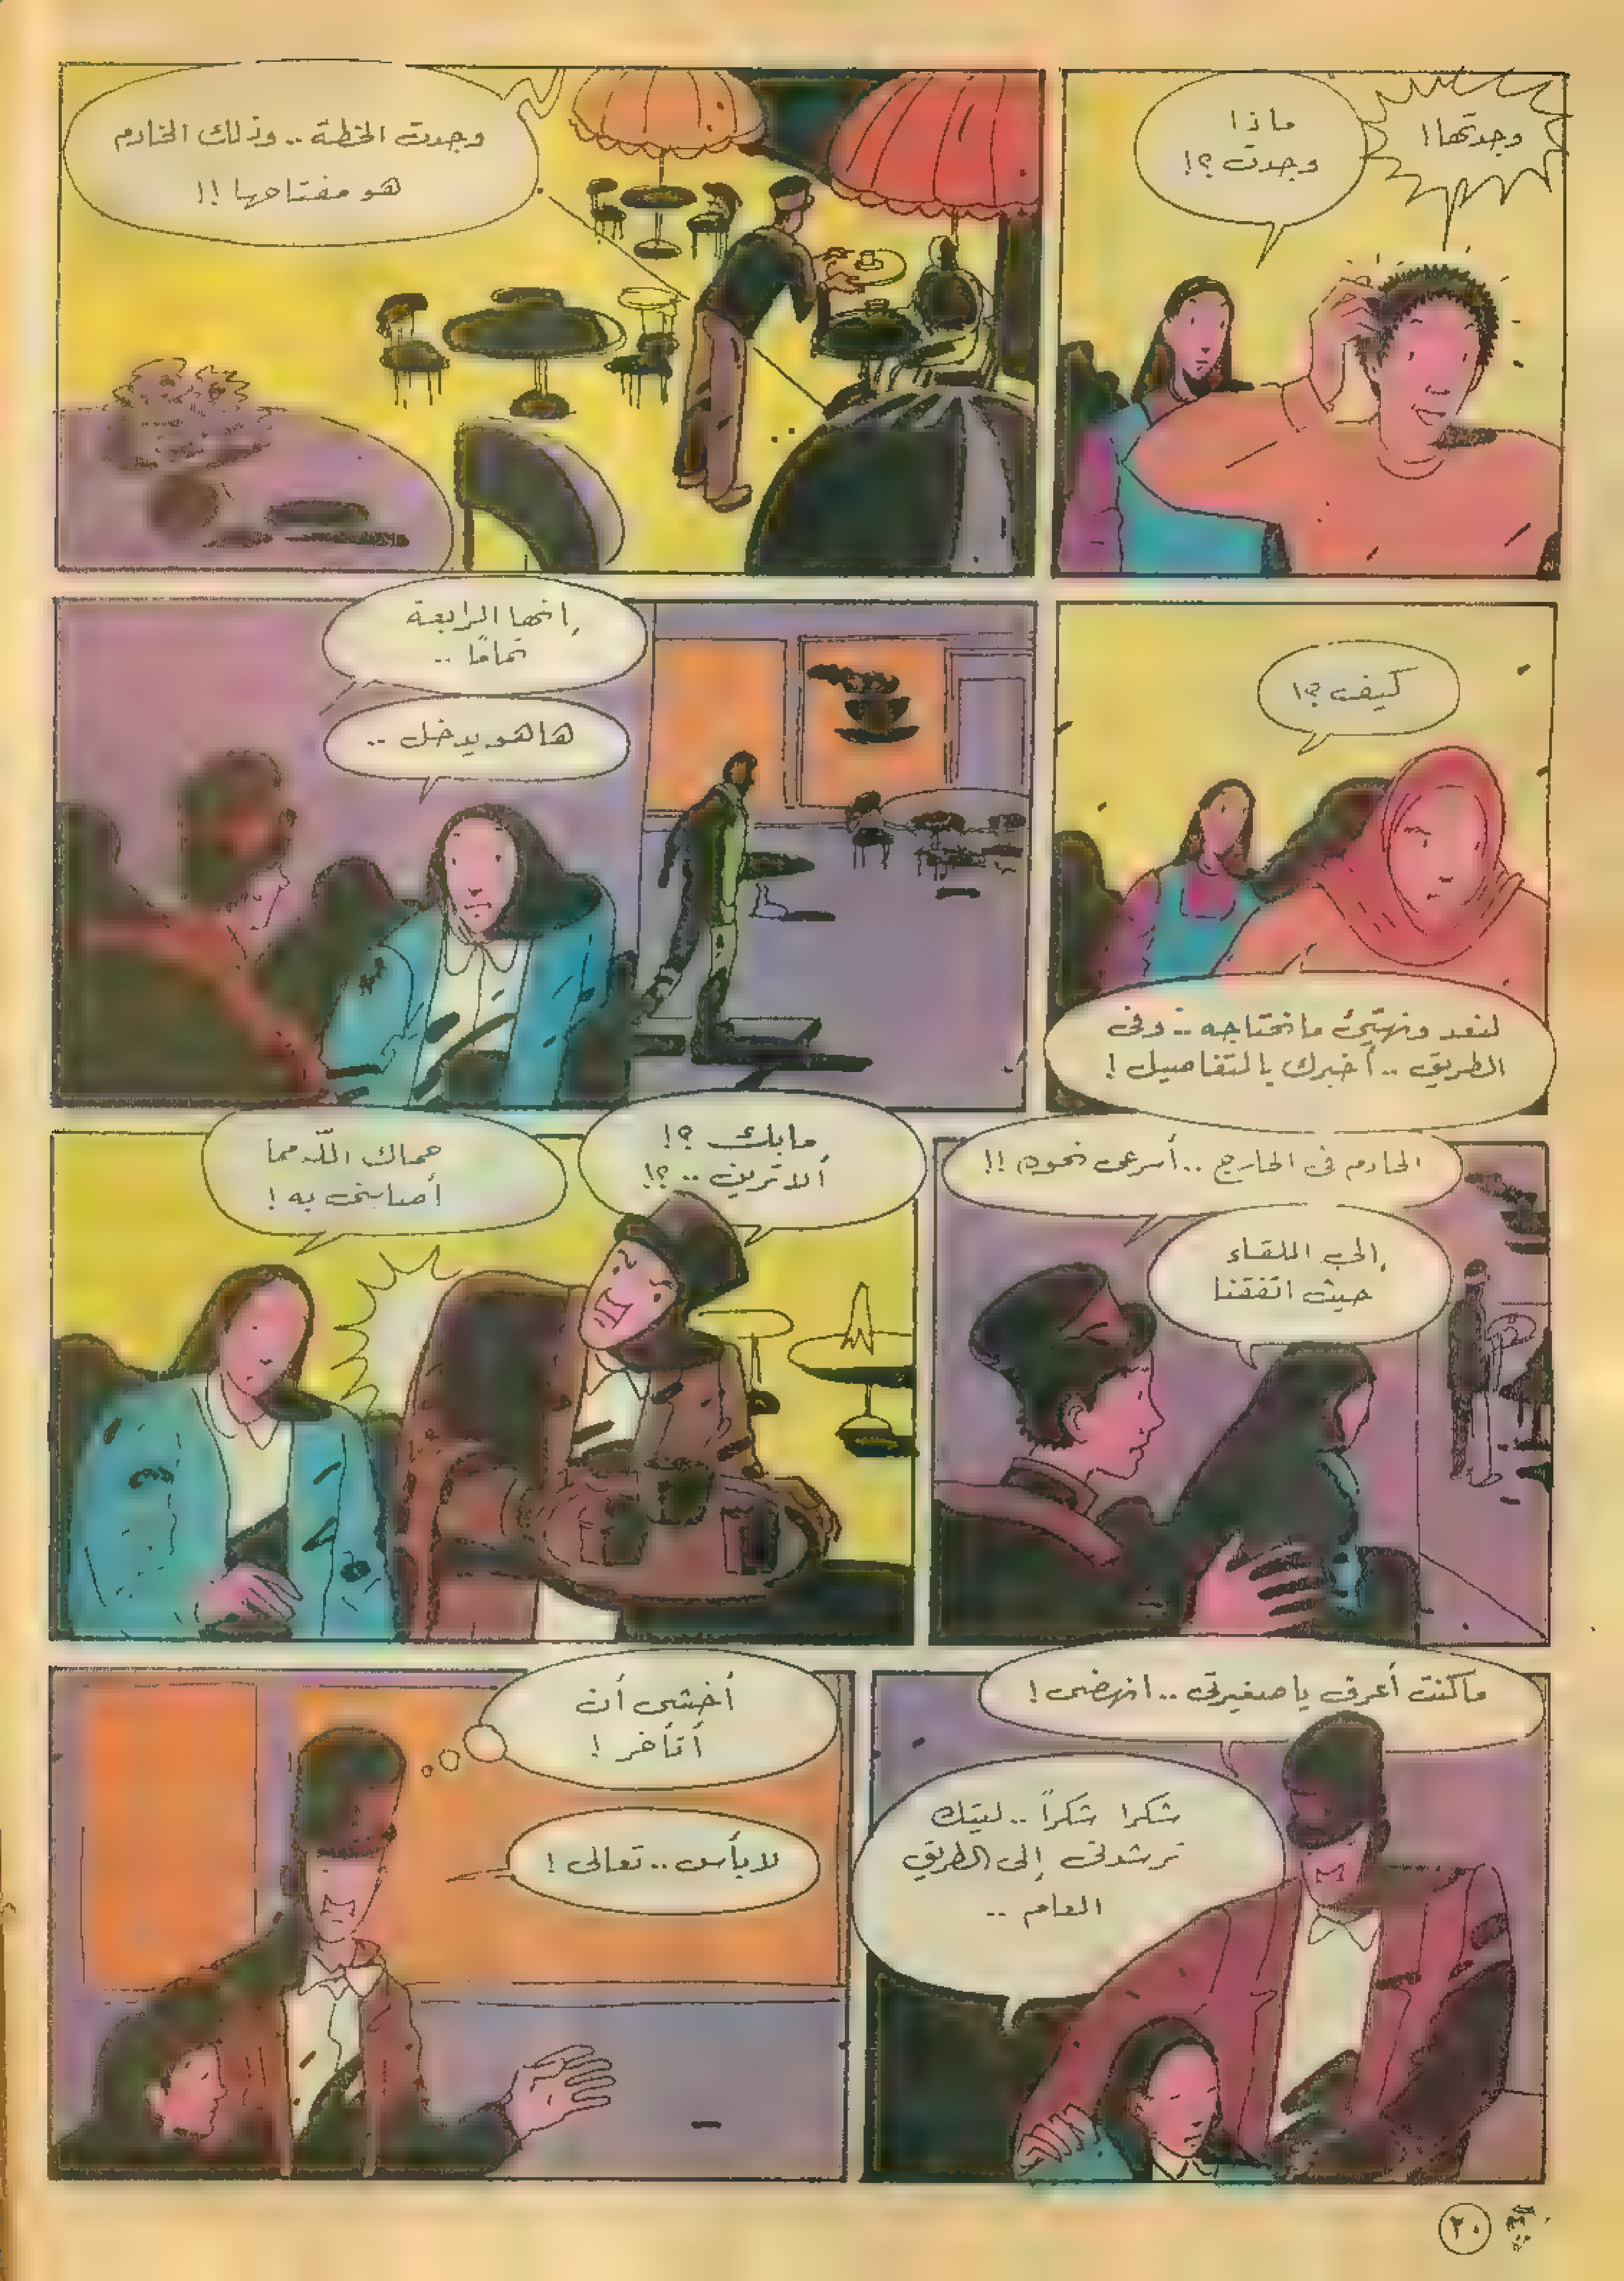 وجدتها!
ماذا
وجدت؟!
وجدت الخطة.. وذلك الخادم
هو مفتاحها!!
كيف؟!
لنعد ونهيّئ ما نحتاجه.. وفى
الطريق.. أخبرك بالتفاصيل!
إنها الرابعة
تمامًا..
ها هو يدخل..
الخادم فى الخارج.. أسرعى نحوه!!
إلى اللقاء
حيث اتفقنا
ما بك؟!
ألا ترين..؟!
حماك اللّه مما
أصابنى به!
ما كنت أعرف يا صغيرتى.. انهضى!
شكرا شكراً.. ليتك
ترشدنى إلى الطريق
العام..
أخشى أن
أتأخر!
لا بأس.. تعالى!
٢٠